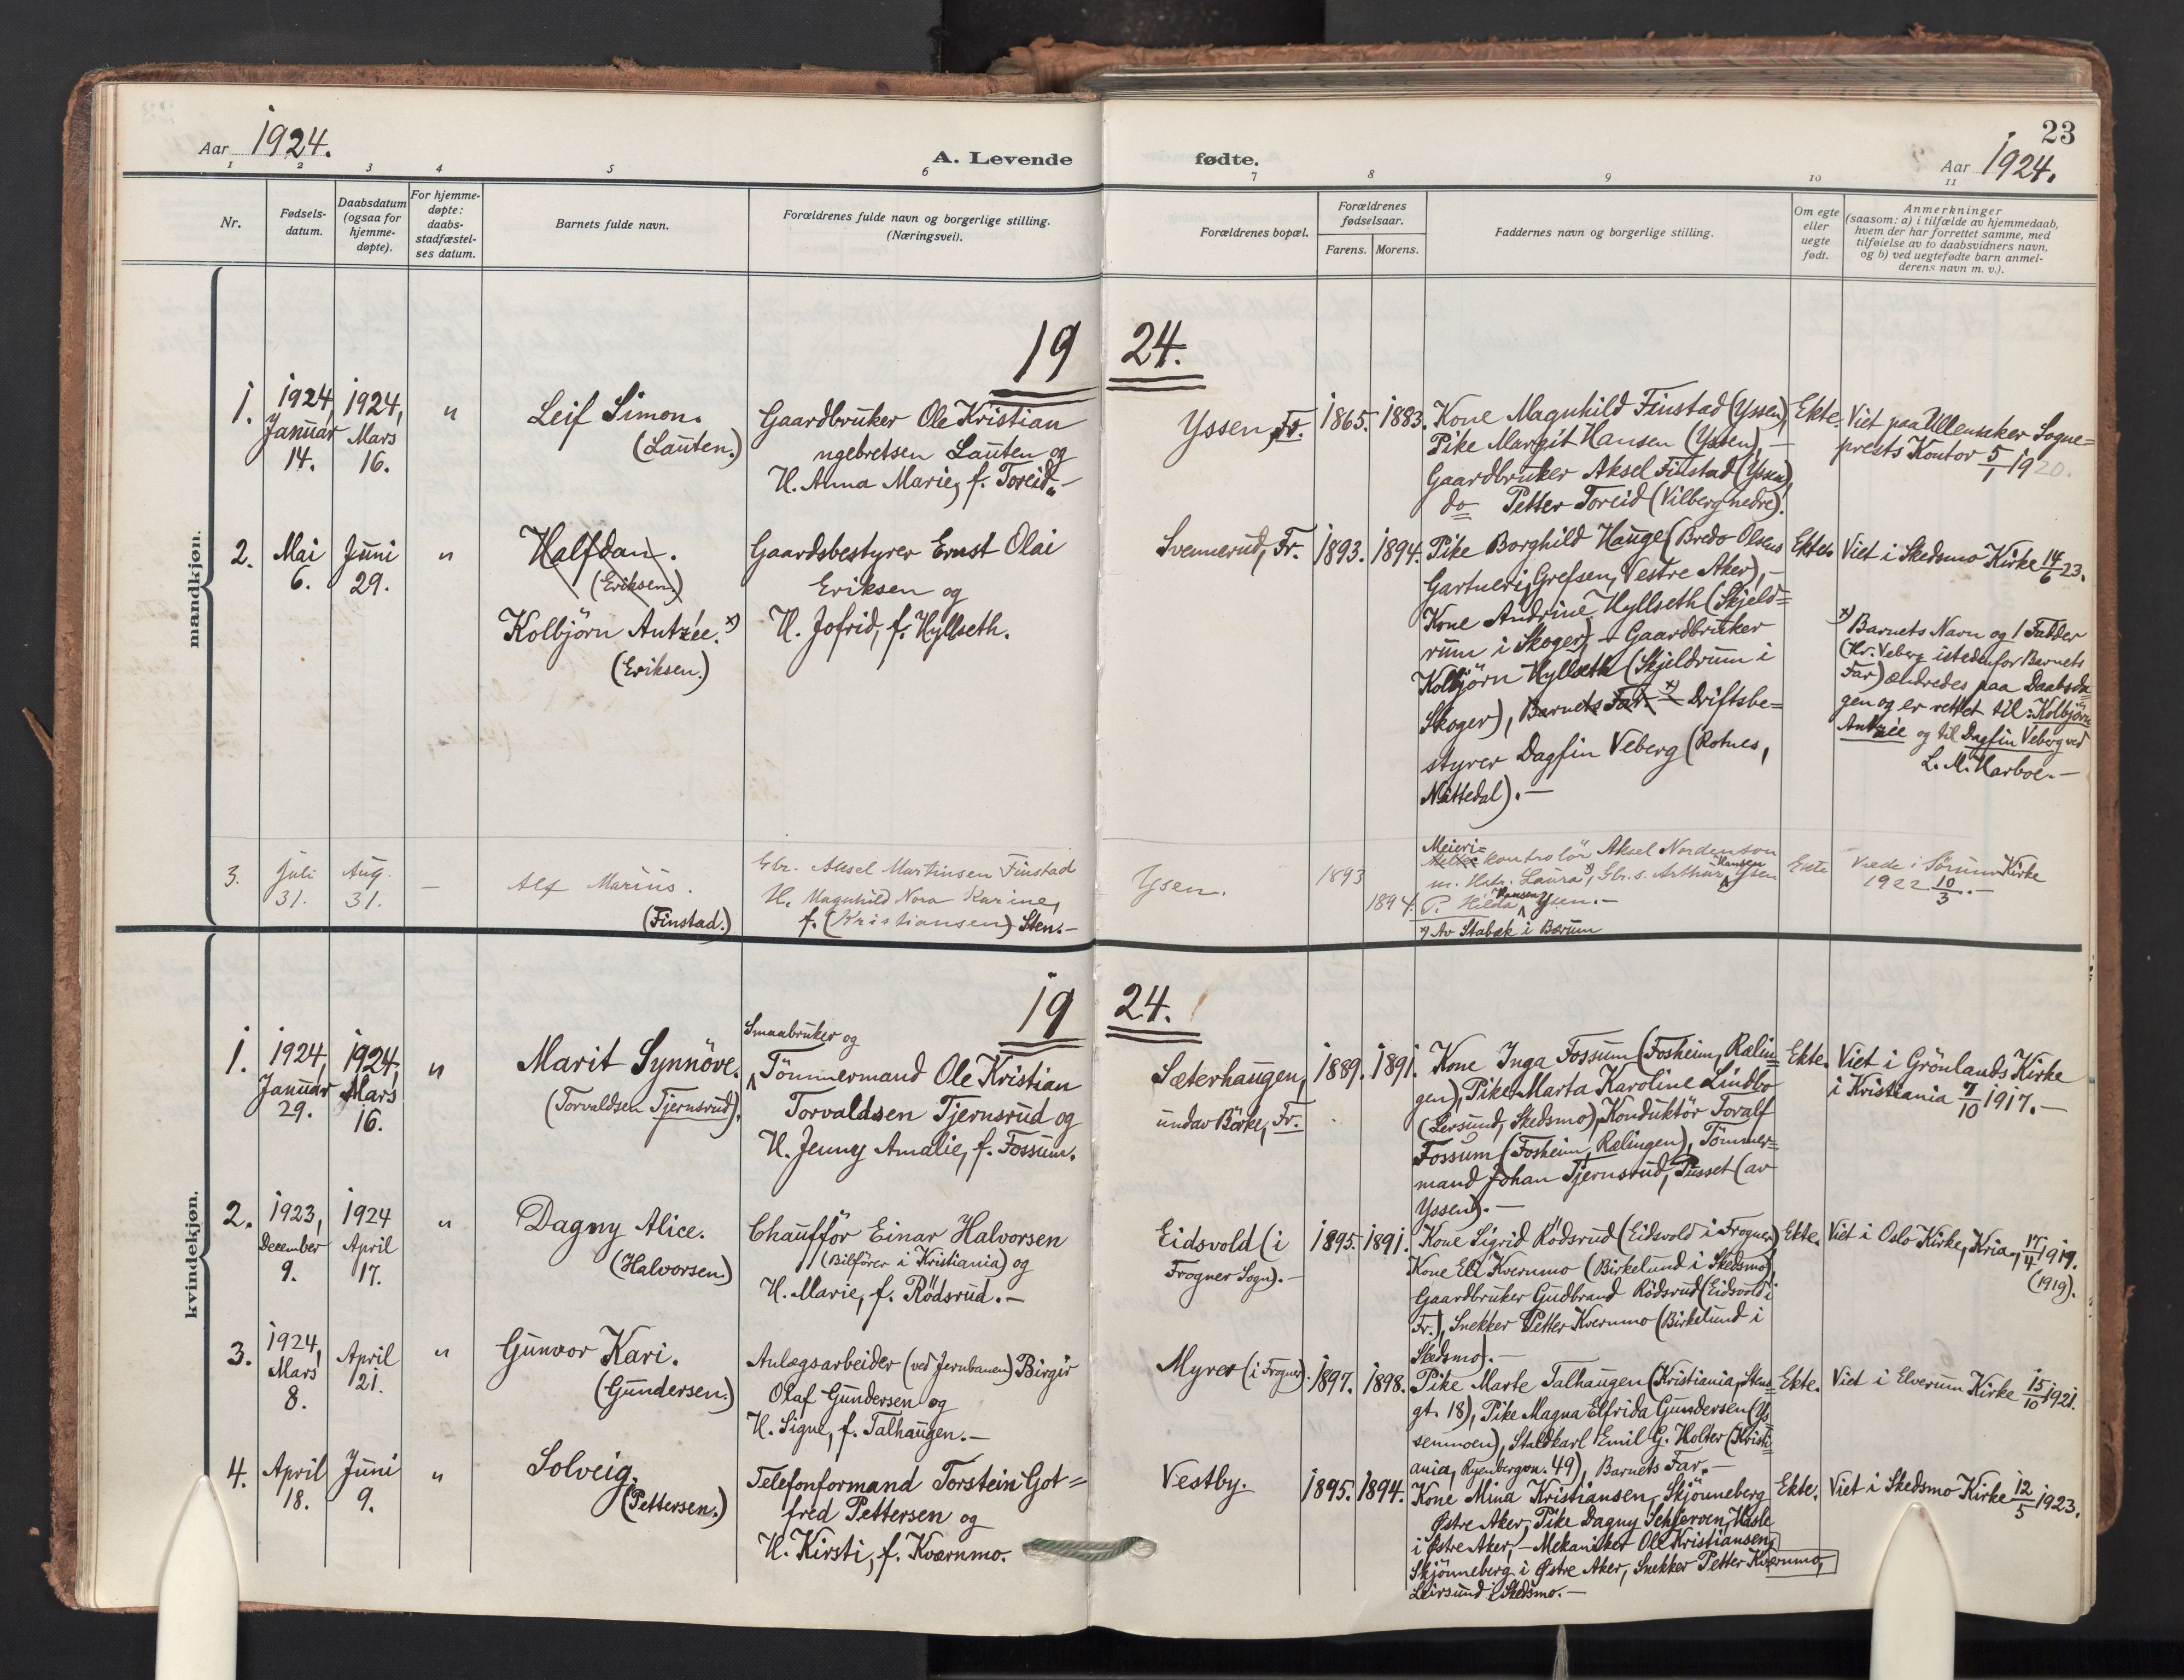 23
Aar 1924.
A. Levende fødte.
Aar 1924.
1 2 3 4 5 6 7 8 9 10 11
Nr.
Fødsels-
datum.
Daabsdatum
(ogsaa for
hjemme-
døpte).
For hjemme-
døpte:
daabs-
stadfæstel-
ses datum.
Barnets fulde navn.
Forældrenes fulde navn og borgerlige stilling.
(Næringsvei).
Forældrenes bopæl.
Forældrenes
fødselsaar.
Farens. Morens.
Faddernes navn og borgerlige stilling.
Om egte
eller
uegte
født.
Anmerkninger
(saasom: a) i tilfælde av hjemmedaab,
hvem der har forrettet samme, med
tilføielse av to daabsvidners navn,
og b) ved uegtefødte barn anmel-
derens navn m. v.).
mandkjøn.
19 24.
1.
1924,
Januar
14.
1924,
Mars
16.
"
Leif Simon.
(Lauten.)
Gaardbruker Ole Kristian
ngebretsen Lauten og
H. Anna Marie, f. Toreid.-
Yssen, Fr.
1865.
1883.
Kone Magnhild Finstad (Yssen),
Pike Margit Hansen (Yssen), -
Gaardbruker Aksel Finstad (Yssen),
do Petter Toreid (Vilberg nedre).
Ekte.
Viet paa Ullensaker Sogne=
prests Kontor 5/1 1920.
2.
Mai
6.
Juni
29.
"
Halfdan.
(Eriksen)
Kolbjörn Antzée. x)
(Eriksen.)
Gaardsbestyrer Ernst Olai
Eriksen og
H. Jofrid, f. Hyllseth.
Svennerud, Fr.
1893.
1894.
Pike Borghild Hauge (Bredo Olsens
Gartneri, Grefsen, Vestre Aker), -
Kone Andrine Hyllseth (Skjeld=
rum i Skoger), - Gaardbruker
Kolbjörn Hyllseth (Skjeldrum i
Skoger), Barnets Far. x) - Driftsbe=
styrer Dagfin Veberg (Rotnes,
Nittedal). -
Ekte.
Viet i Skedsmo Kirke 14/6 23.
x) Barnets Navn og 1 Fadder
(Hr. Veberg istedenfor Barnets
Far) ændredes paa Daabsda=
gen og er rettet til: Kolbjörn
Antzée og til Dagfin Veberg ved
L. M. Harboe. -
3.
Juli
31.
Aug.
31.
-
Alf Marius.
(Finstad.)
Gbr. Aksel Martinsen Finstad
H. Magnhild Nora Karine,
f. (Kristiansen) Sten. -
Ysen.
1893
1894.
Meieri=
kontrolör Aksel Nordenson
m. Hustr. Laura x), Gbr. s. Arthur Hansen Ysen
P. Hilda Hansen Ysen. -
x) Av Stabæk i Bærum
Ekte
Viede i Sörum Kirke
1922 10/3. -
kvindekjøn.
19 24.
1.
1924,
Januar
29.
1924,
Mars
16.
"
Marit Synnöve.
(Torvaldsen Tjernsrud).
Smaabruker og
Tömmermand Ole Kristian
Torvaldsen Tjernsrud og
H. Jenny Amalie, f. Fossum.
Sæterhaugen,
undav Börke, Fr.
1889.
1891.
Kone Inga Fossum (Fosheim, Rælin=
gen), Pike Marta Karoline Lindbo
(Lersund, Skedsmo), Konduktör Toralf
Fossum (Fosheim, Rælingen), Tömmer=
mand Johan Tjernsrud, Pusset (av
Yssen). -
Ekte.
Viet i Grönlands Kirke
i Kristiania 7/10 1917. -
2.
1923,
December
9.
1924
April
17.
"
Dagny Alice.
(Halvorsen.)
Chaufför Einar Halvorsen
(Bilförer i Kristiania) og
H. Marie, f. Rödsrud. -
Eidsvold (i
Frogner Sogn). -
1895.
1891.
Kone Sigrid Rödsrud (Eidsvold i Frogner)
Kone Eli Kvernmo (Birkelund i Skedsmo),
Gaardbruker Gudbrand Rödsrud (Eidsvold i
Fr.), Snekker Petter Kvernmo (Birkelund i
Skedsmo). -
Ekte.
Viet i Oslo Kirke, Kria, 17/4 1919.
(1919).
3.
1924,
Mars
8.
April
21.
"
Gunvor Kari.
(Gundersen.)
Anlægsarbeider (ved Jernbanen) Birgir
Olaf Gundersen og
H. Signe, f. Talhaugen. -
Myrer (i Frogner).
1897.
1898.
Pike Marte Talhaugen (Kristiania, Stens=
gt. 18), Pike Magna Elfrida Gundersen (Ys=
senmoen), Staldkarl Emil G. Holter (Kristi=
ania, Ryenbergvn. 49), Barnets Far. -
Ekte.
Viet i Elverum Kirke 15/10 1921.
4.
April
18.
Juni
9.
"
Solveig.
(Pettersen.)
Telefonformand Torstein Got=
fred Pettersen og
H. Kirsti, f. Kværnmo.
Vestby.
1895.
1894.
Kone Mina Kristiansen, Skjönneberg
Østre Aker, Pike Dagny Hasle
i Østre Aker, - Mekaniker Ole Kristiansen,
Skjönneberg i Østre Aker, Snekker Petter Kværnmo,
Leirsund i Skedsmo. -
Ekte.
Viet i Skedsmo Kirke 12/5 1923.